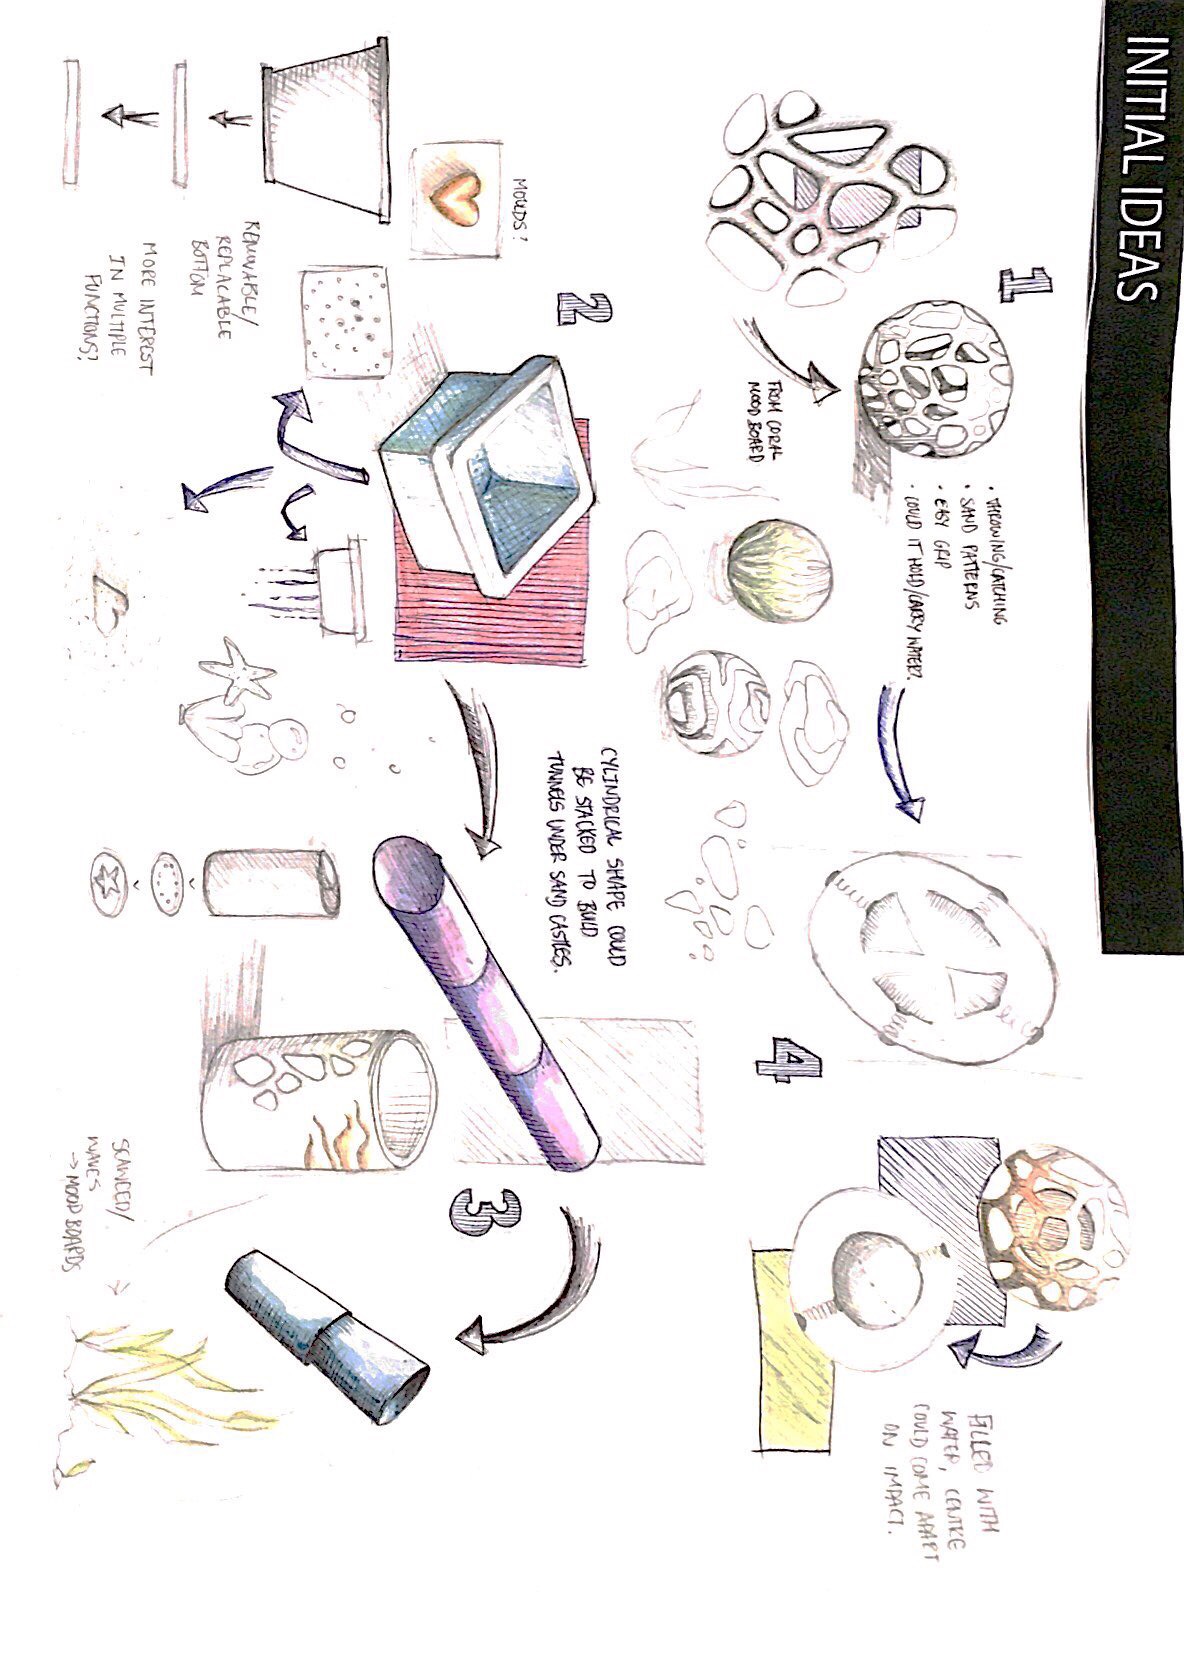 INITIAL IDEAS
1
• THROWING/CATCHING
• SAND PATTERNS
• EASY GRIP
• COULD IT HOLD/CARRY WATER?
FROM CORAL
MOOD BOARD
4
FILLED WITH
WATER, CENTRE
COULD COME APART
ON IMPACT.
2
MOULDS?
REMOVABLE/
REPLACABLE
BOTTOM
MORE INTEREST
IN MULTIPLE
FUNCTIONS?
CYLINDRICAL SHAPE COULD
BE STACKED TO BUILD
TUNNELS UNDER SAND CASTLES.
3
SEAWEED/
WAVES
→ MOOD BOARDS